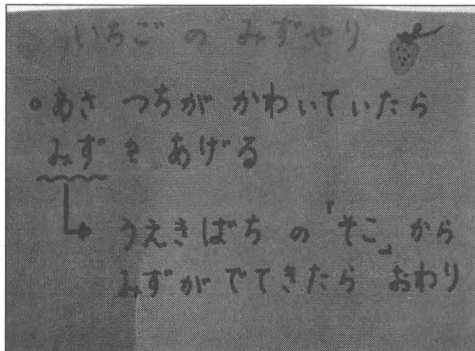 いちご の みずやり
・あさ つちが かわいていたら
みずを あげる
うえきばち の「そこ」から
みずがでてきたら おわり